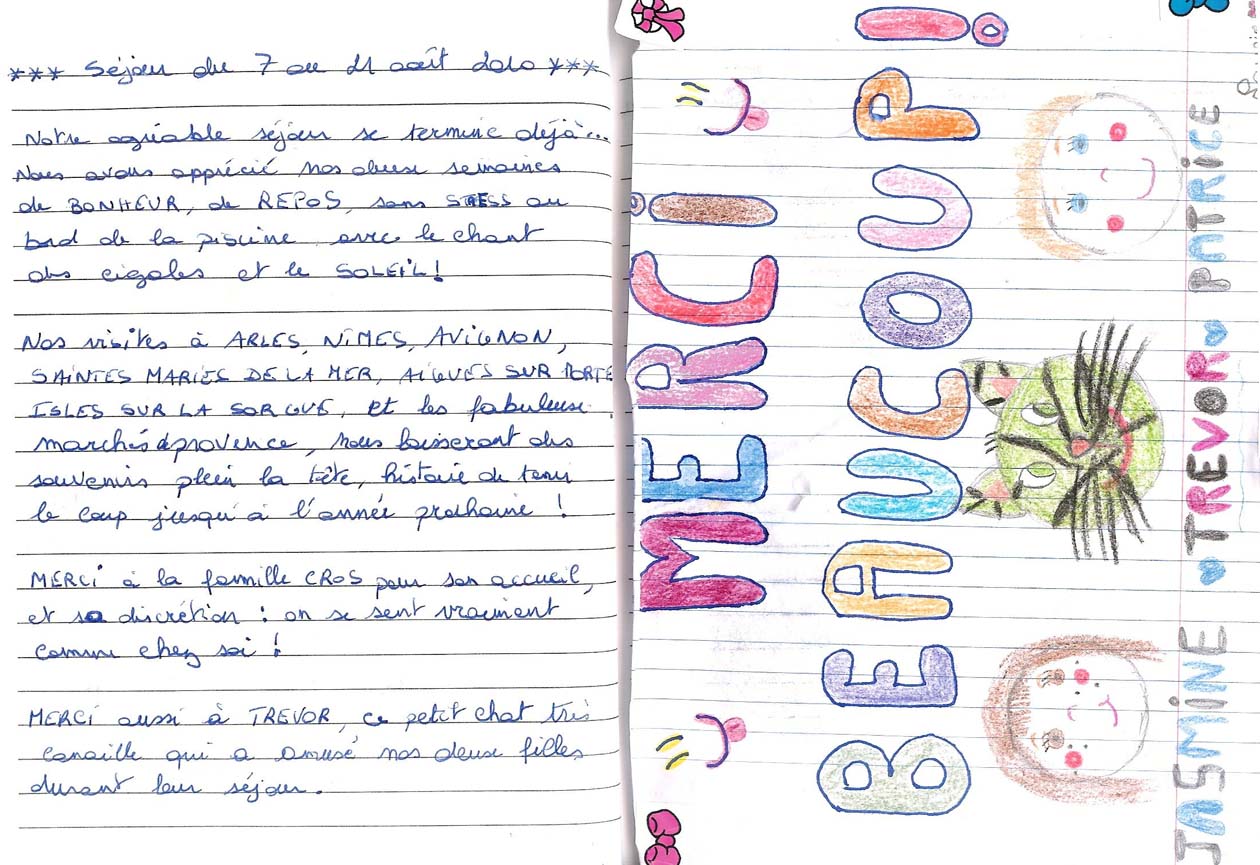 *** Séjour du 7 au 21 août 2010 ***
Notre agréable séjour se termine déjà...
Nous avons apprécié nos deux semaines
de BONHEUR, de REPOS, sans STRESS au
bord de la piscine avec le chant
des cigales et le SOLEIL!
Nos visites à ARLES, NîMES, AVIGNON,
SAINTES MARIES DE LA MER, AIGUES SUR MORTE
ISLES SUR LA SORGUE, et les fabuleuse
marchés de provence, nous laisseront des
souvenirs plein la tête, histoire de tenir
le coup jusqu'à l'année prochaine !
MERCI à la famille CROS pour son accueil,
et sa discrétion : on se sent vraiment
comme chez soi !
MERCI aussi à TREVOR, ce petit chat très
canaille qui a amusé nos deux filles
durant leur séjour.
MERCI
BEAUCOUP!
JASMiNE TREVOR PATRiCE